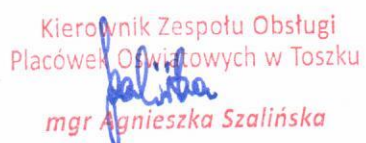 Kierownik Zespołu Obsługi
Placówek Oświatowych w Toszku
mgr Agnieszka Szalińska